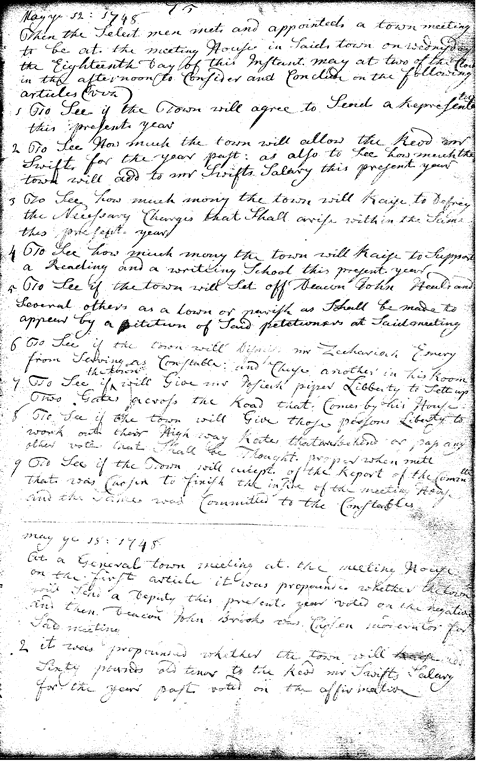 May ye 12: 1748
Then the Select men mets and appointed a town meeting
to be at the meeting House in Saids town on wednsday
the Eighteenth Day of this Instant may at two of the Clock
in the afternoon to Consider and Conclud on the following
articles
1 To See if the Town will agree to Send a Represente
this present year
2 To See How much the town will allow the Revd mr
Swifts for the year past: as also to See how much the
town will add to mr Swifts Salary this present year
3 To See how much mony the town will Raise to Defray
the Necessary Charges that Shall arise within the Same
this present year
4 To See how much mony the town will Raise to Support
a Reading and a writeing School this present year
5 To See if the town will Set off Deacon John Heald and
Several others as a town or parish as Shall be made to
appear by a petition of Said petetioners at Said meeting
6 To See if the town will Dismis mr Zechariah Emery
from Serving as Constable: and Chuse another in his Room
7 To See if the town will Give mr Josiah piper Libberty to Sett up
Two Gates across the Road that Comes by his House:
8 To See if the town will Give those persons Liberty to
work out their High way Rates that are behind or pas any
other vote that Shall be Thought proper when mett
9 To See if the Town will except of the Report of the Comm tte
that was Chosen to finish the inside of the meeting House
and the Same was Committed to the Constables
may ye 18: 1748
At a General town meeting at the meeting House
on the first article it was propounded whether the town
would Send a Deputy this present year voted on the negative
and then Deacon John Brooks was Chosen moderator for
Said meeting
2 it was propounded whether the town will add
Sixty pounds old tenor to the Revd mr Swifts Salary
for the year past voted on the affirmative